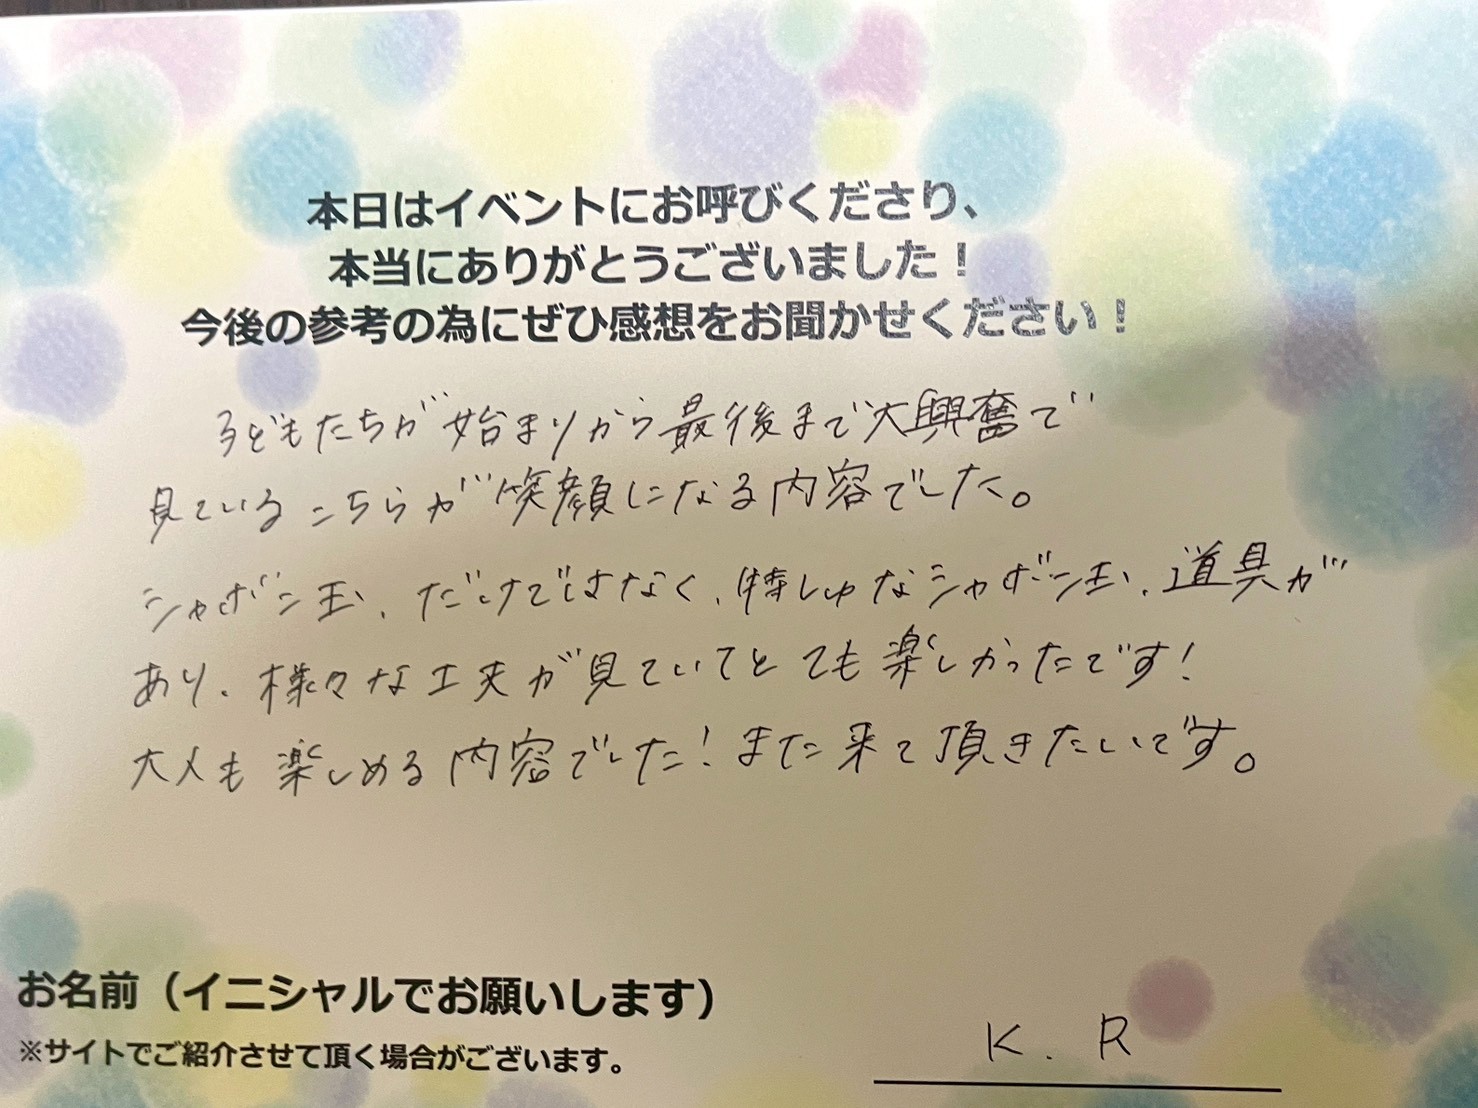 本日はイベントにお呼びくださり、
本当にありがとうございました！
今後の参考の為にぜひ感想をお聞かせください！
子どもたちが始まりから最後まで大興奮で
見ているこちらが笑顔になる内容でした。
シャボン玉、だけではなく、特しゅなシャボン玉、道具が
あり、様々な工夫が見ていてとても楽しかったです！
大人も楽しめる内容でした！また来て頂きたいです。
お名前（イニシャルでお願いします）
※サイトでご紹介させて頂く場合がございます。
K．R